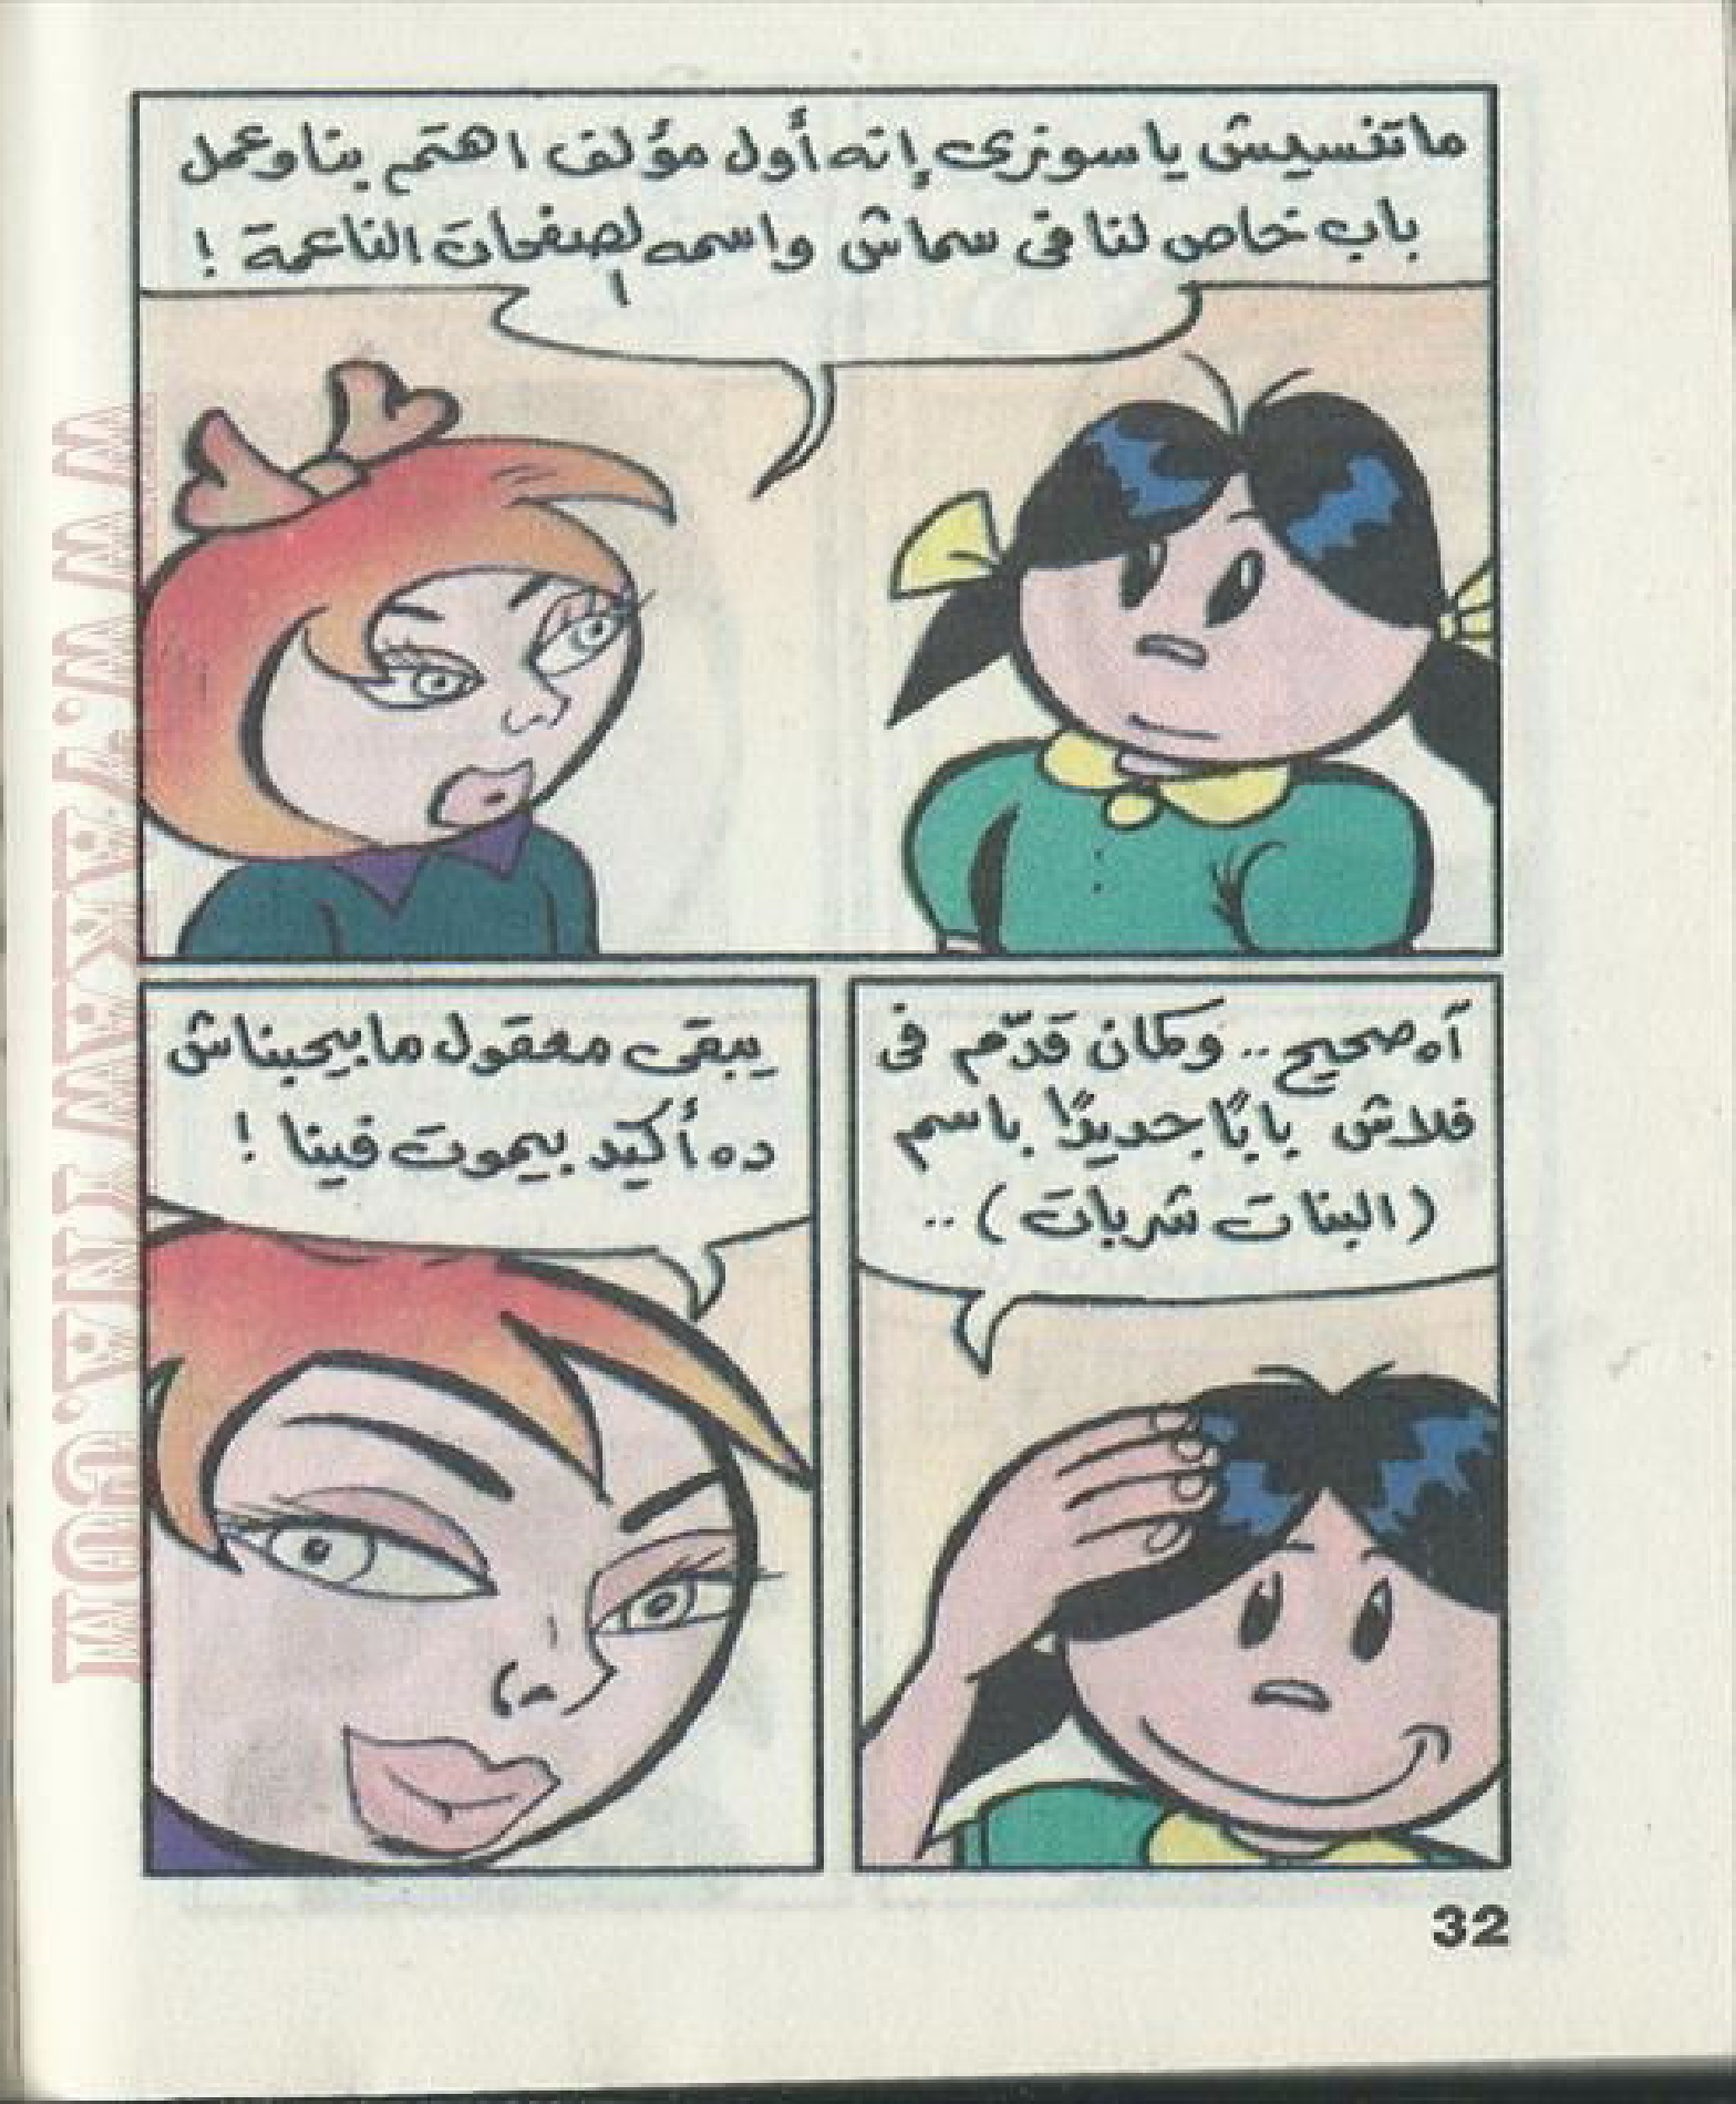 ماتنسيش ياسوزى إنه أول مؤلف اهتم بنا وعمل
باب خاص لنا فى سماش واسمه الصفحات الناعمة !
آه صحيح .. وكمان قدّم فى
فلاش بابًا جديدًا باسم
(البنات شربات) ..
يبقى معقول مابيحبناش
ده أكيد بيموت فينا !
32
WWW.TAKAWINAA.COM